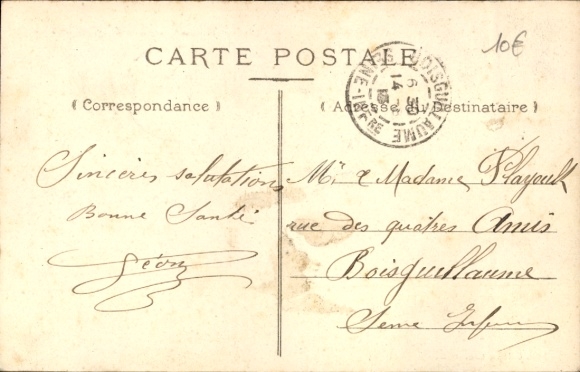 10€
CARTE POSTALE
BOISGUILLAUME
6 30
14
( Correspondance )
( Adresse du Destinataire )
Sincères salutations
Bonne Santé
Léon
Mr & Madame
rue des quatres Amis
Boisguillaume
Seine Infre